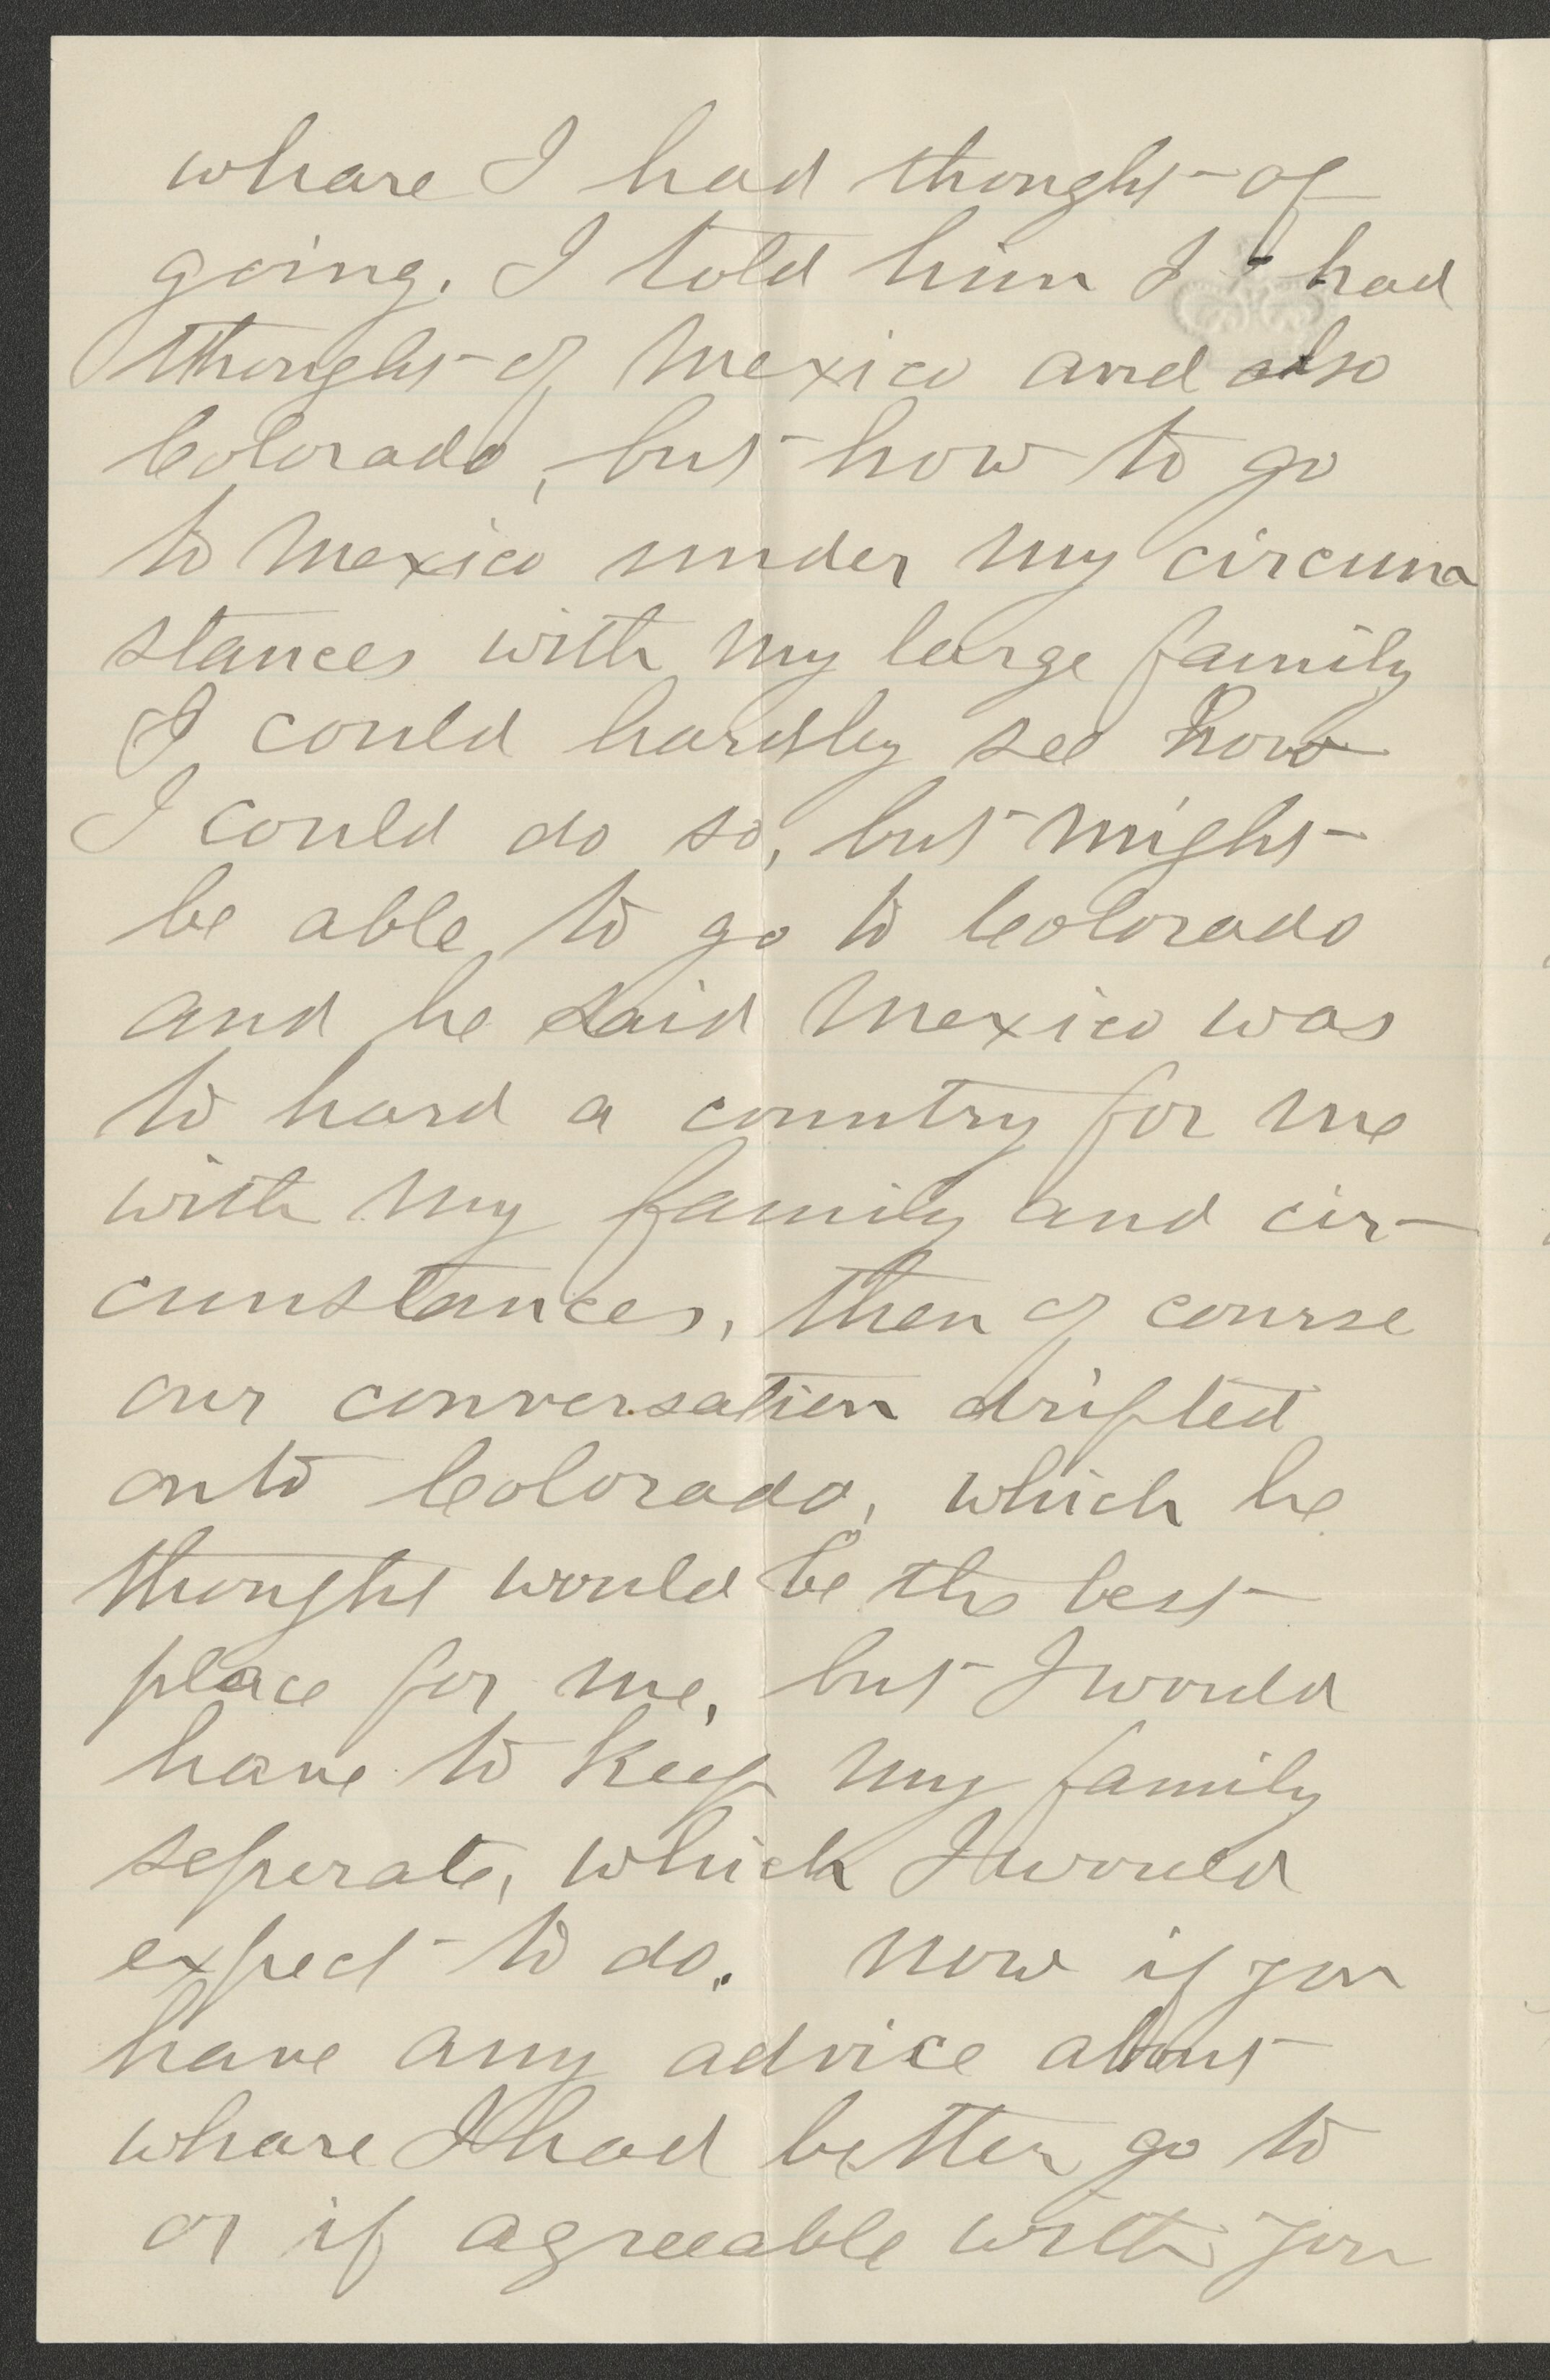 whare I had thought of
going. I told him I had
thought of Mexico and also
Colorado, but how to go
to Mexico under my circum
stances with my large family
I could hardly see how
I could do so, but might
be able to go to Colorado
and he said Mexico was
to hard a country for me
with my family and cir-
cumstances, then of course
our conversation drifted
onto Colorado, which he
thought would be the best
place for me, but I would
have to keep my family
seperate, which I would
expect to do. Now if you
have any advice about
whare I had better go to
or if agreeable with you